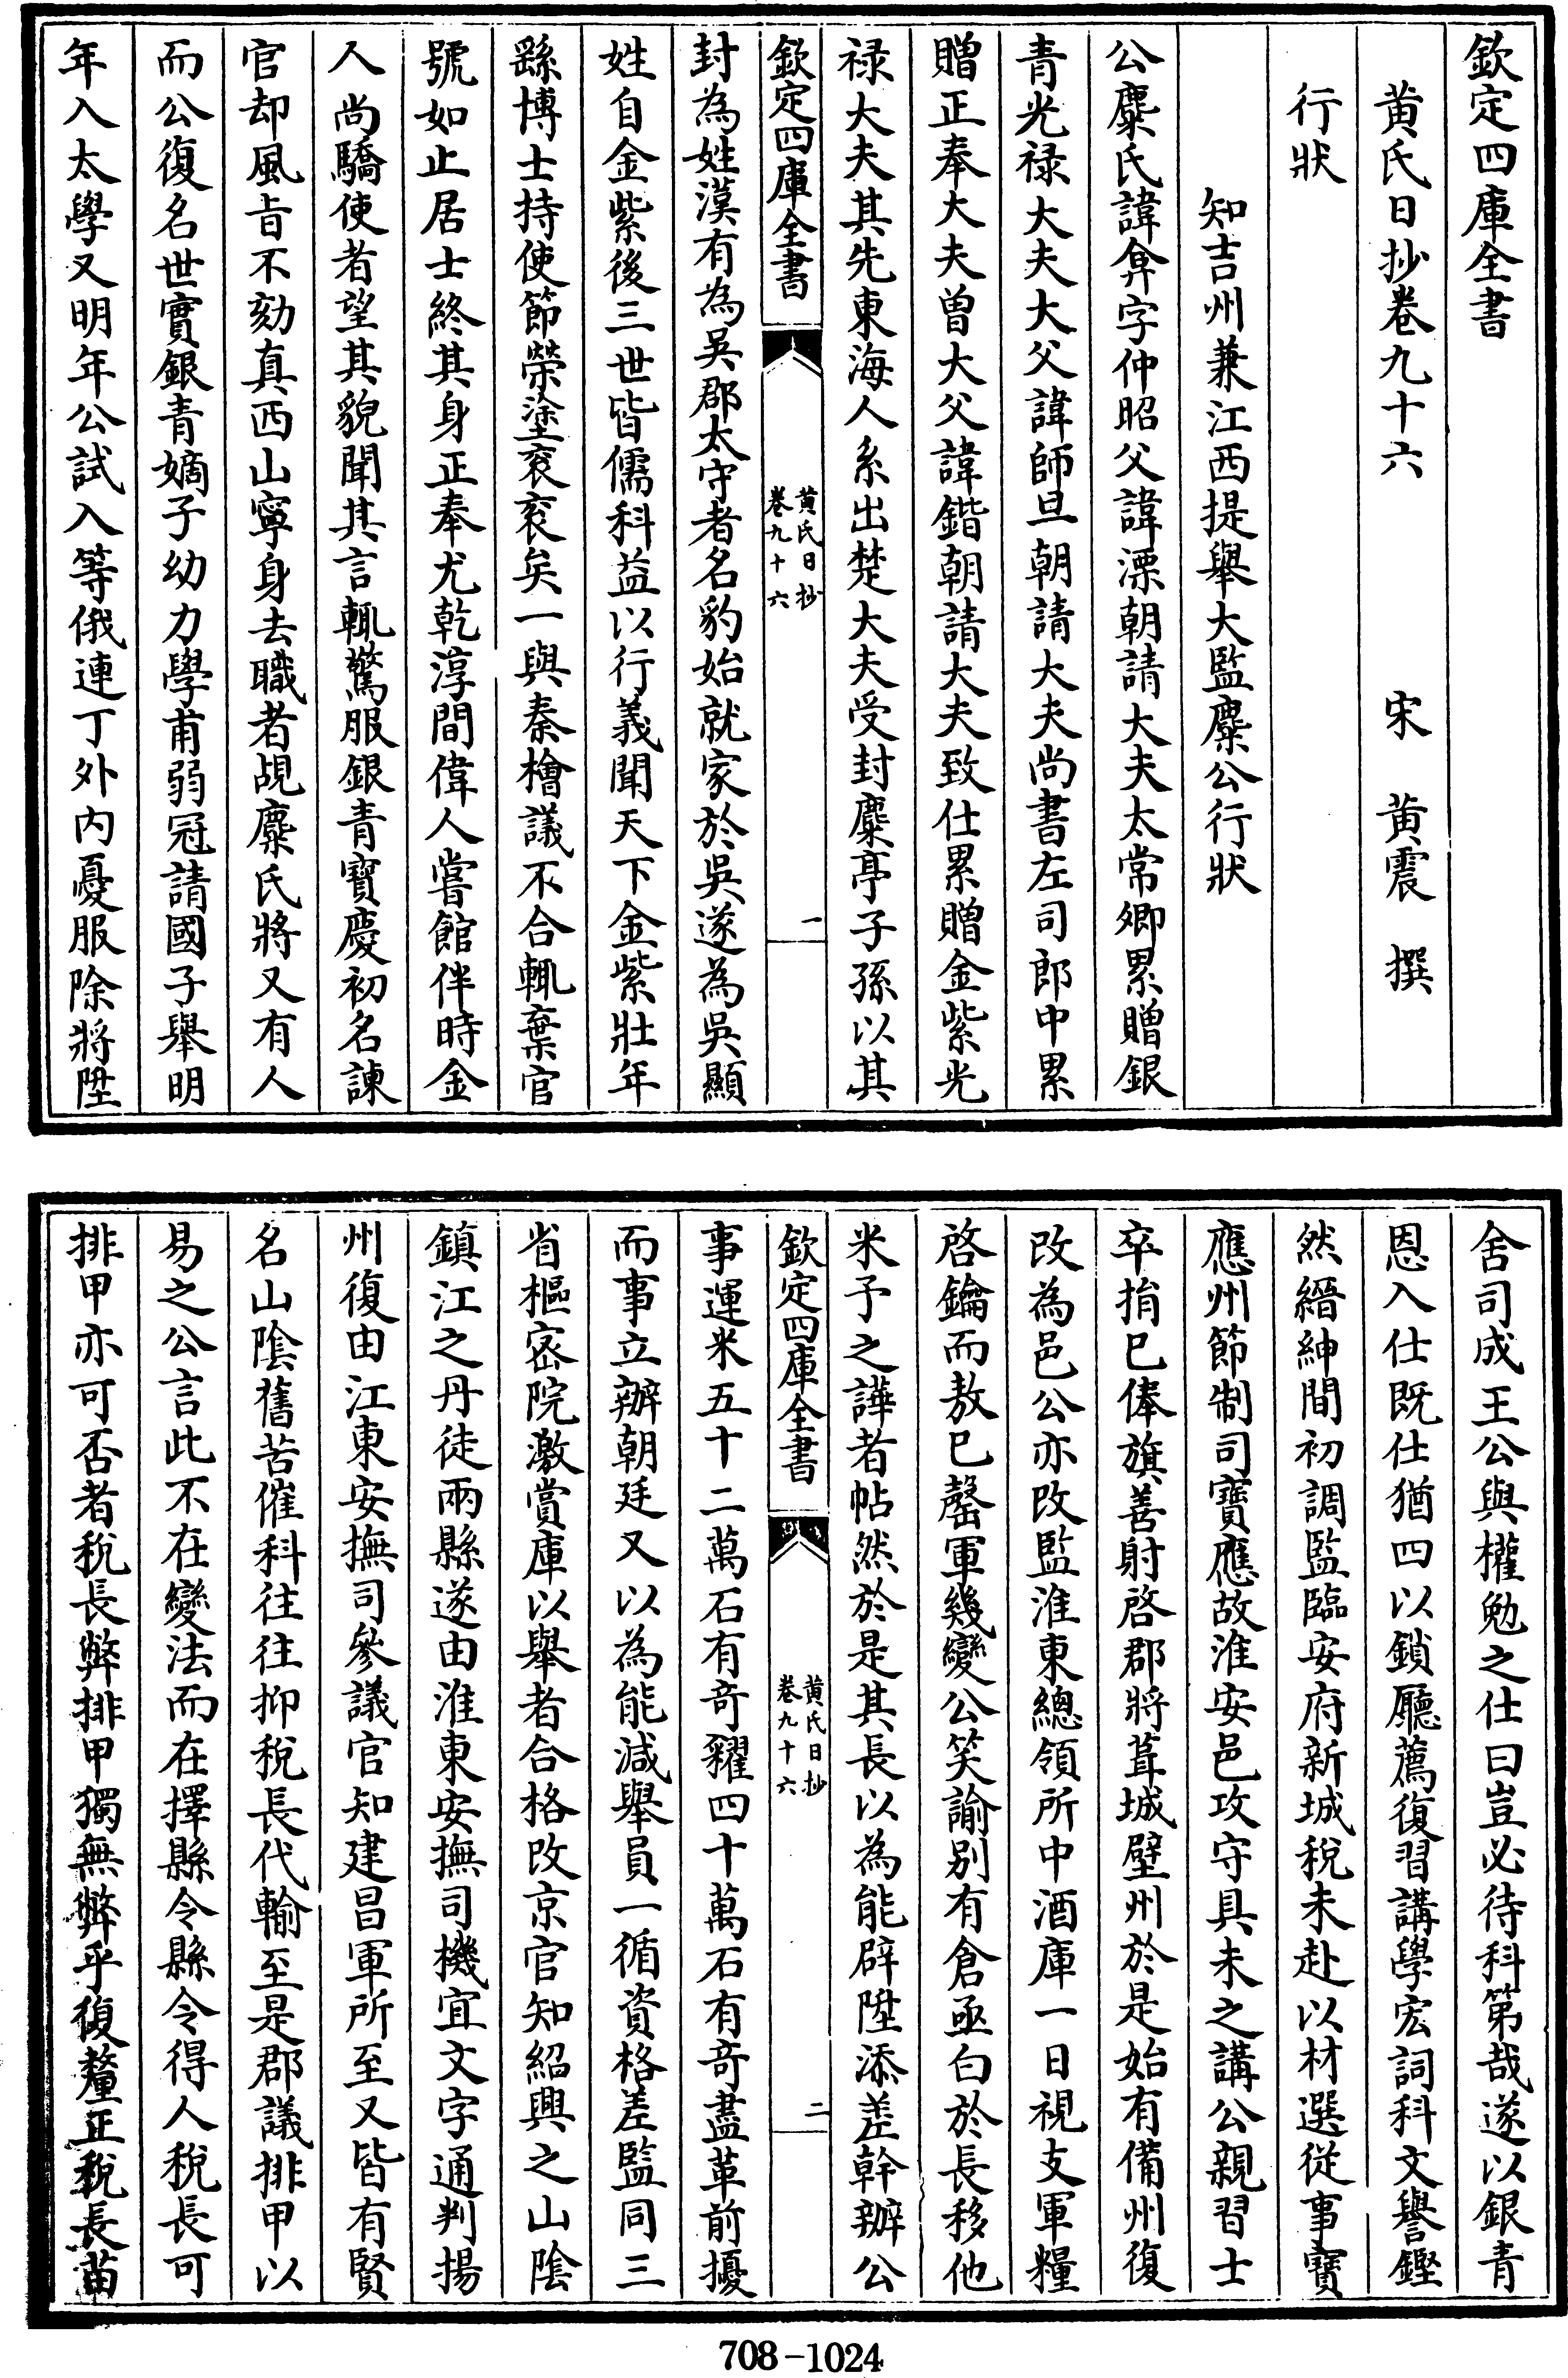 欽定四庫全書
黄氏日抄卷九十六　宋　黄震　撰
行狀
知吉州兼江西提舉大監麋公行狀
公麋氏諱弇字仲昭父諱溧朝請大夫太常卿累贈銀
青光禄大夫大父諱師旦朝請大夫尚書左司郎中累
贈正奉大夫曽大父諱鍇朝請大夫致仕累贈金紫光
禄大夫其先東海人系出楚大夫受封麋亭子孫以其
欽定四庫全書
黄氏日抄
卷九十六
一
封為姓漢有為吳郡太守者名豹始就家於吳遂為吳顯
姓自金紫後三世皆儒科益以行義聞天下金紫壯年
繇博士持使節榮塗衮衮矣一與秦檜議不合輒棄官
號如止居士終其身正奉尤乾淳間偉人嘗館伴時金
人尚驕使者望其貌聞其言輒驚服銀青寶慶初名諫
官却風㫖不劾真西山寧身去職者覘麋氏將又有人
而公復名世實銀青嫡子幼力學甫弱冠請國子舉明
年入太學又明年公試入等俄連丁外内憂服除將陞
舍司成王公與權勉之仕曰豈必待科第哉遂以銀青
恩入仕既仕猶四以鎖廳薦復習講學宏詞科文譽鏗
然縉紳間初調監臨安府新城税未赴以材選從事寶
應州節制司寶應故淮安邑攻守具未之講公親習士
卒捐已俸旗善射啓郡將葺城壁州於是始有備州復
改為邑公亦改監淮東總領所中酒庫一日視支軍糧
啓鑰而敖已罄軍幾變公笑諭别有倉亟白於長移他
米予之譁者帖然於是其長以為能辟陞添差幹辦公
欽定四庫全書
黄氏日抄
卷九十六
二
事運米五十二萬石有奇糴四十萬石有奇盡革前擾
而事立辦朝廷又以為能減舉員一循資格差監同三
省樞密院激賞庫以舉者合格改京官知紹興之山陰
鎮江之丹徒兩縣遂由淮東安撫司機宜文字通判揚
州復由江東安撫司參議官知建昌軍所至又皆有賢
名山陰舊苦催科往往抑税長代輸至是郡議排甲以
易之公言此不在變法而在擇縣令縣令得人税長可
排甲亦可否者税長弊排甲獨無弊乎復釐正税長苗
708-1024